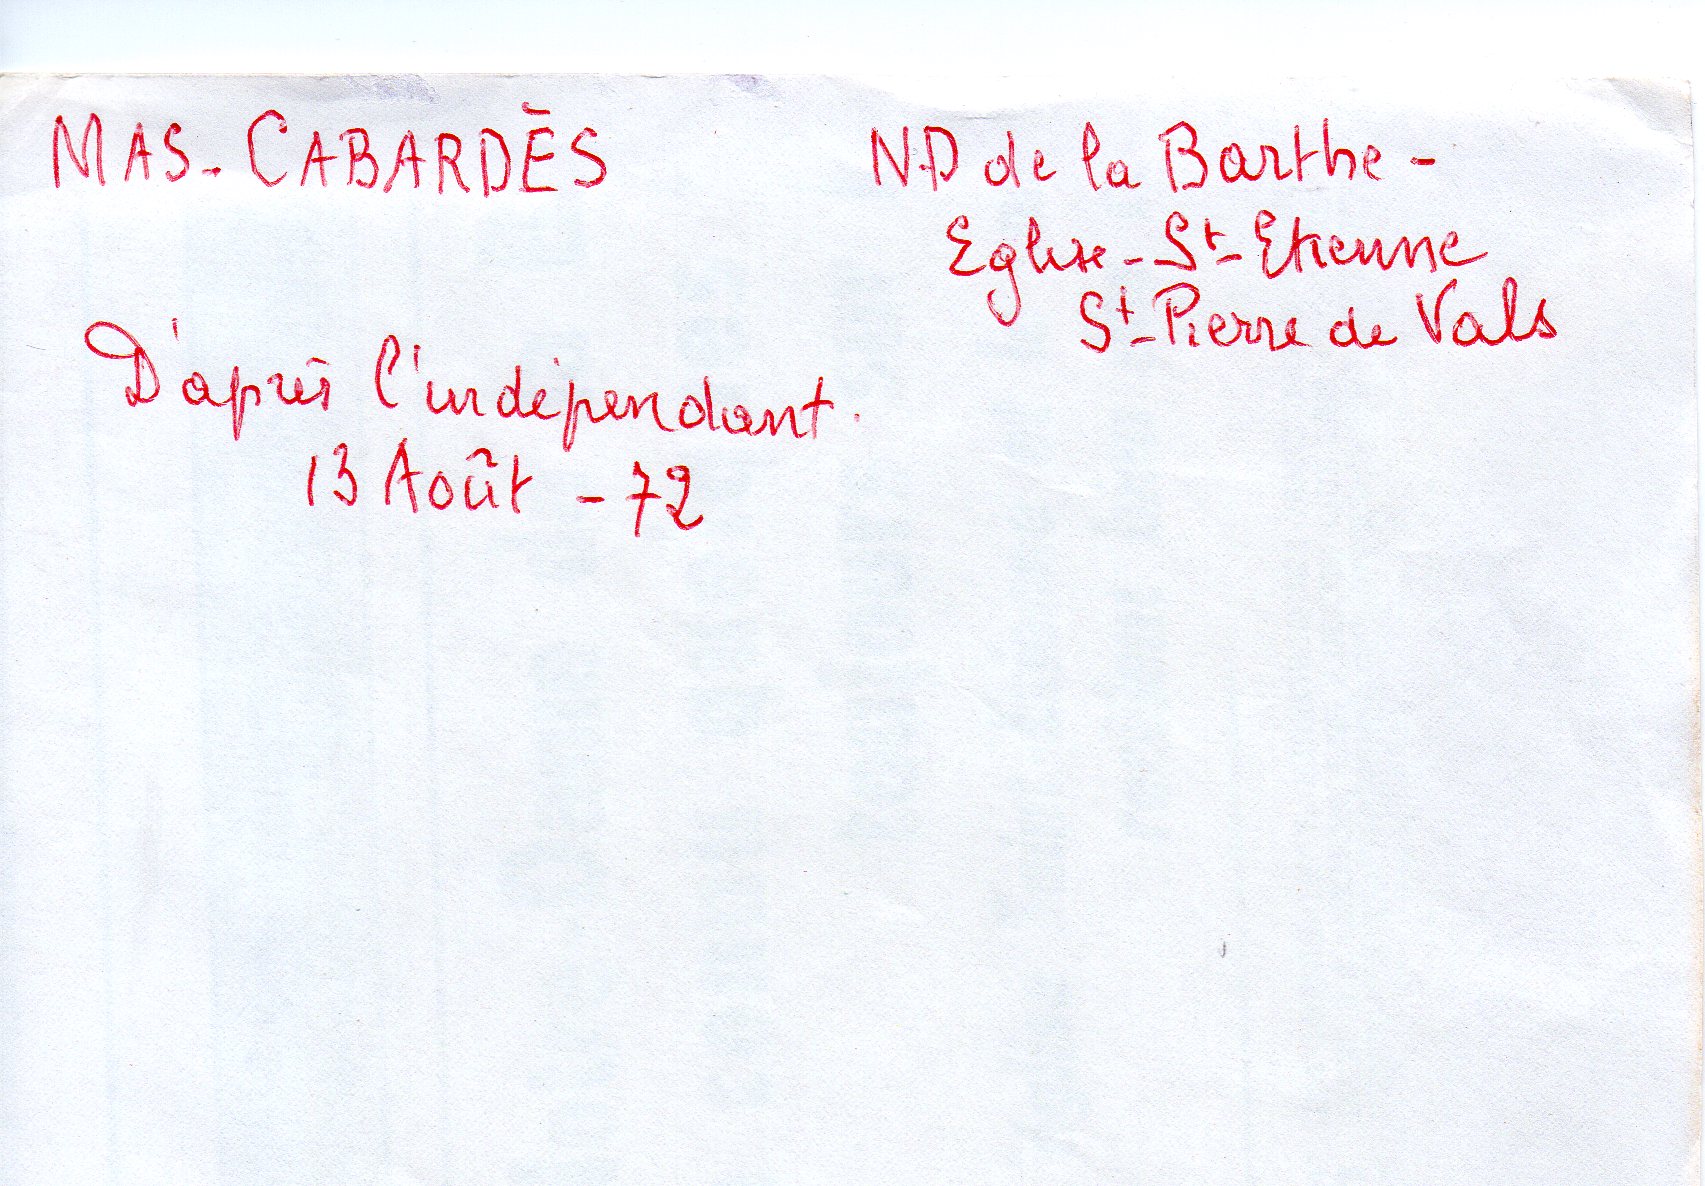 MAS-CABARDÈS
D'après l'indépendant.
13 Août - 72
N.D de la Barthe -
Eglise - St-Etienne
St-Pierre de Vals